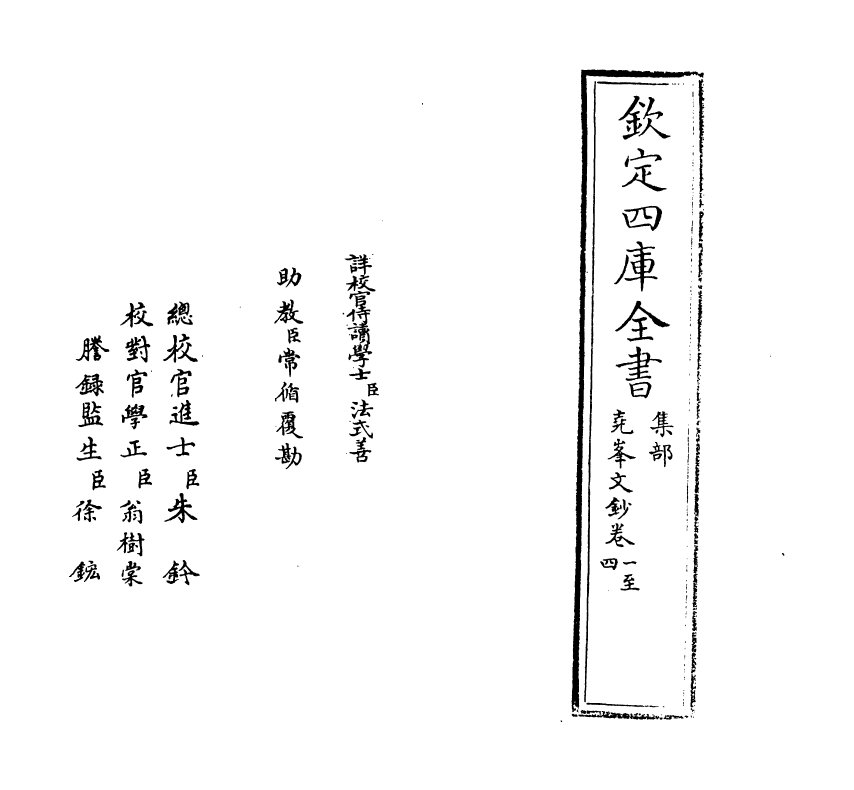 欽定四庫全書
集部
堯峯文鈔卷一至四
詳校官侍讀學士臣法式善
助教臣常循覆勘
總校官進士臣朱鈐
校對官學正臣翁樹棠
謄錄監生臣徐鋐